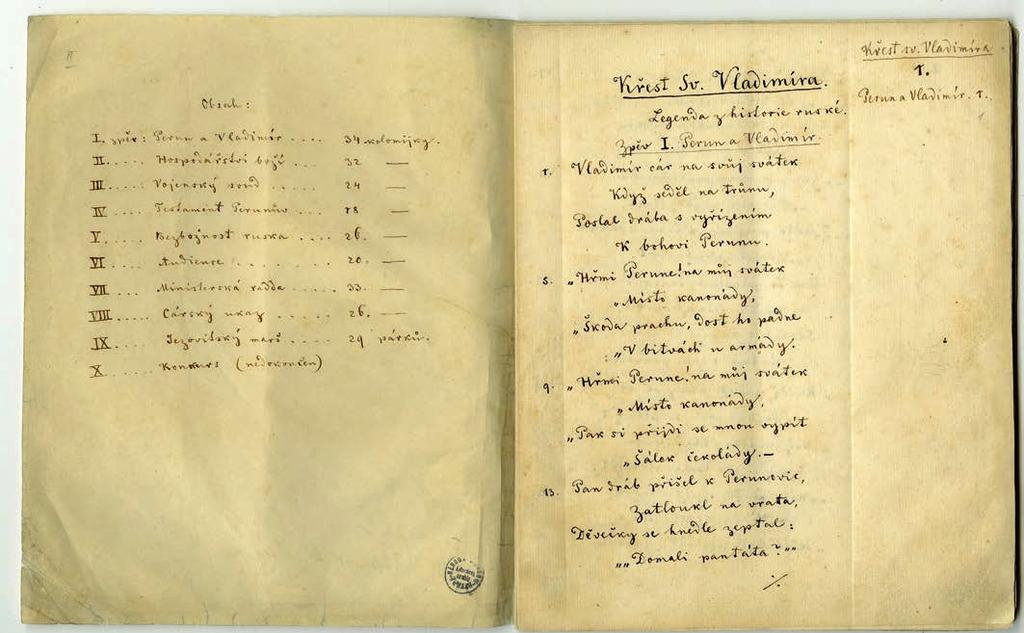 Obsah:
I. zpěv: Perun a Vladimír .... 34 kolomijky.
II ..... Hospodářství boží .... 32 —
III ..... Vojenský soud ..... 24 —
IV .... Testament Perunův ... 18 —
V ..... Bezbožnost ruska .... 26. —
VI .... Audience ......... 20. —
VII .... Ministerská radda ...... 33. —
VIII ..... Cárský ukaz ...... 26. —
IX ..... Jezovitský marš ..... 29 párků.
X ..... Konkurs (nedokončen)
Křest Sv. Vladimíra.
Legenda z historie ruské.
Zpěv I. Perun a Vladimír.
1. Vladimír cár na svůj svátek
Když seděl na trůnu,
Poslal drába s vyřízením
K bohovi Perunu.
5. „Hřmi Perune! na můj svátek
„Místo kanonády,
„Škoda prachu, dost ho padne
„V bitvách u armády.
9. „Hřmi Perune! na můj svátek
„Místo kanonády,
„Pak si přijdi se mnou vypít
„Šálek čekolády. —
13. Pan dráb přišel k Perunovic,
Zatloukl na vrata,
Děvečky se hnedle zeptal:
„„Domali pantáta?““
Křest sv. Vladimíra
1.
Perun a Vladimír. 1.